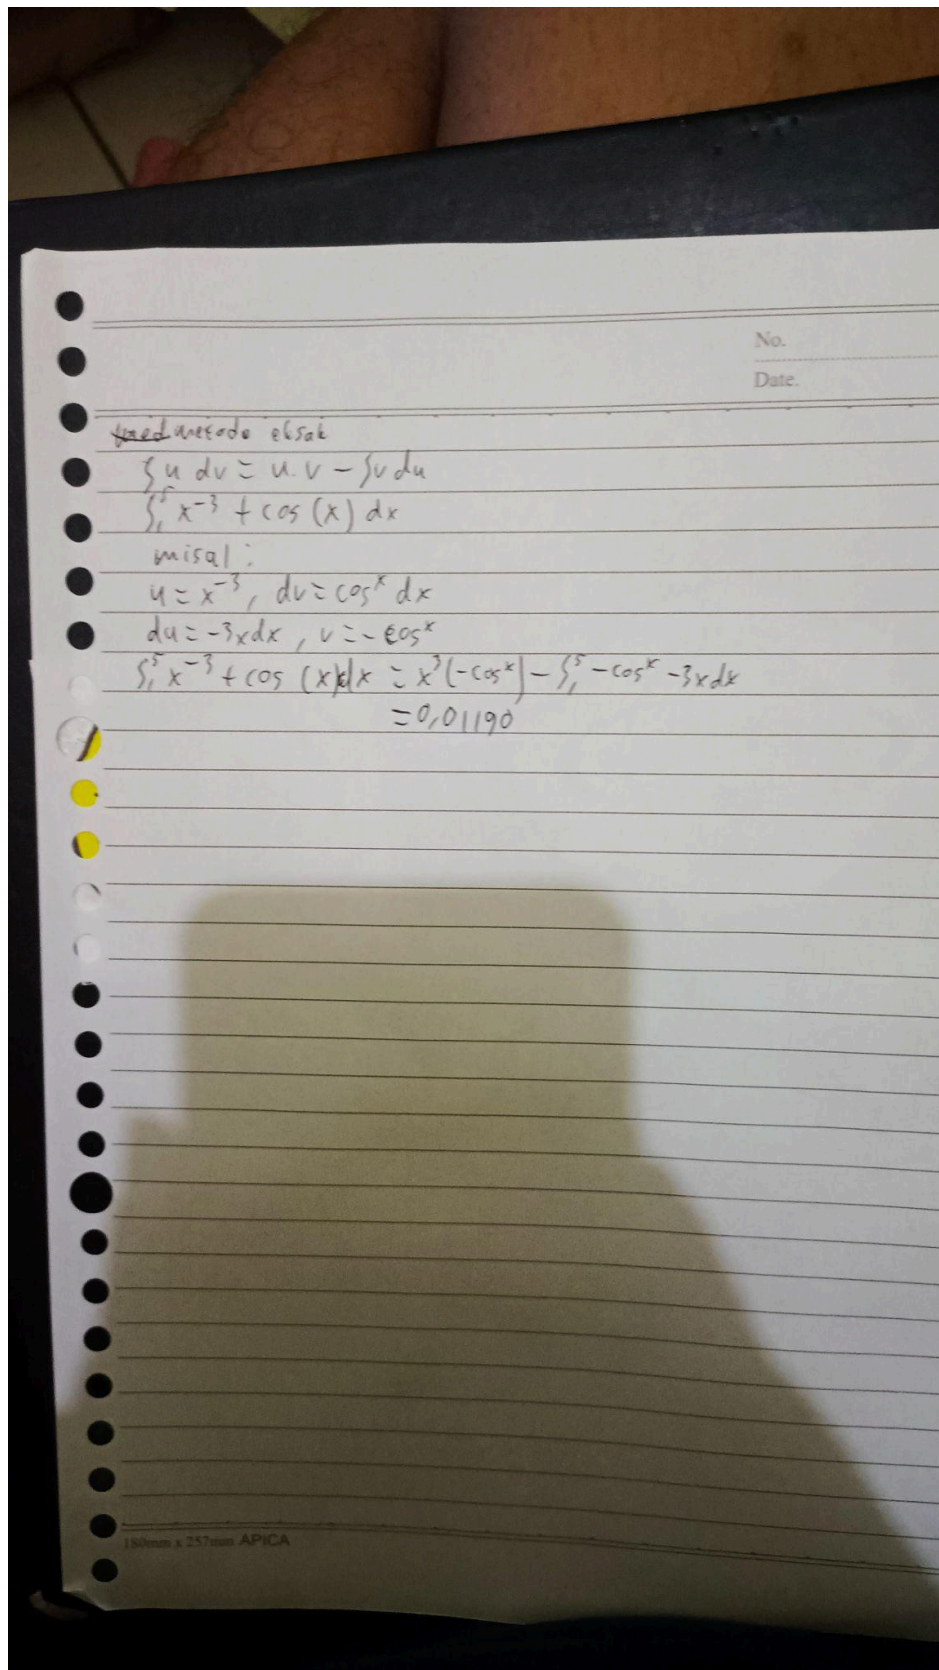 No.
Date.
metode eksak
∫ u dv = u.v - ∫v du
∫₁⁵ x⁻³ + cos (x) dx
misal :
u = x⁻³, dv = cosˣ dx
du = -3x dx , v = - cosˣ
∫₁⁵ x⁻³ + cos (x) dx = x³(-cosˣ) - ∫₁⁵ - cosˣ - 3x dx
= 0,01190
180mm x 257mm APICA